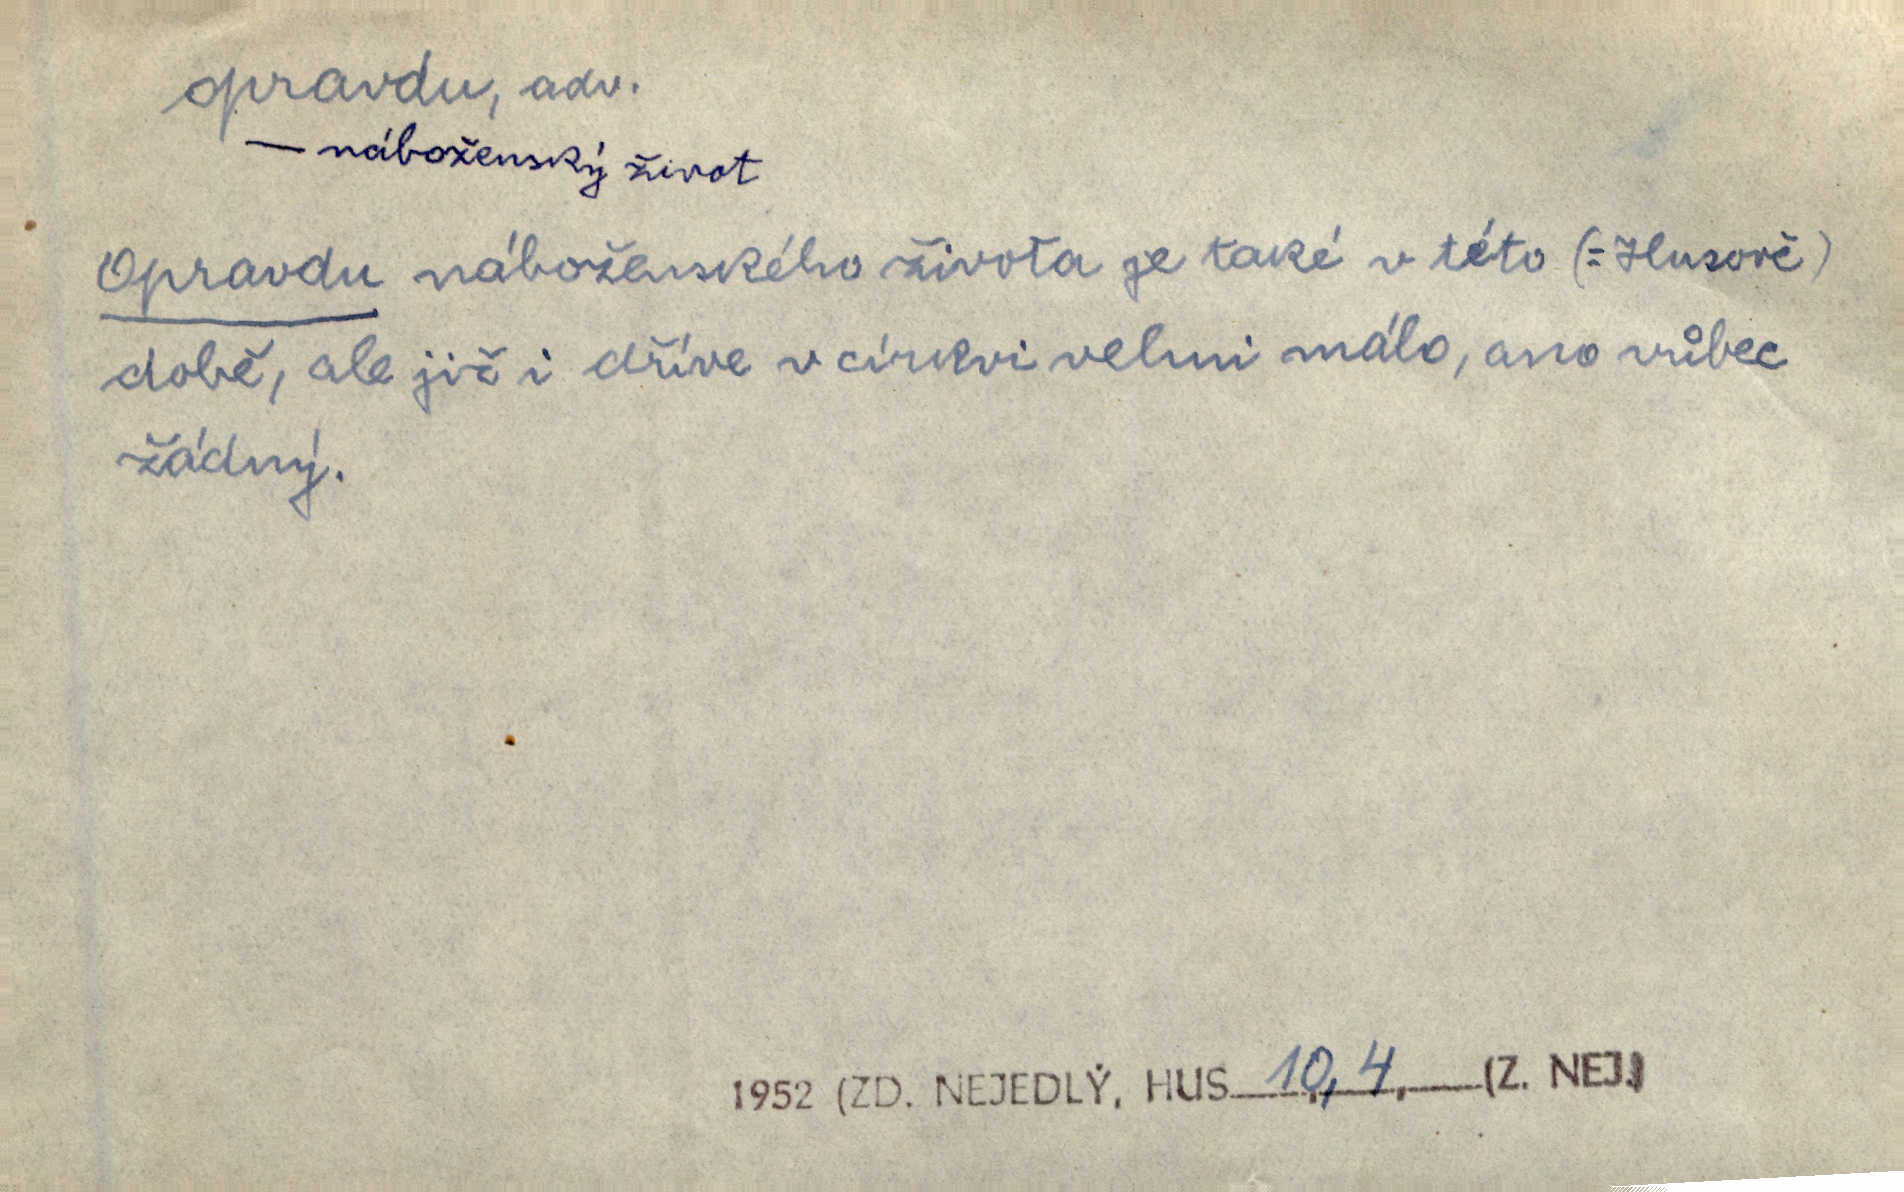 opravdu, adv.
— náboženský život
Opravdu náboženského života je také v této (= Husově)
době, ale již i dříve v církvi velmi málo, ano vůbec
žádný.
1952 (ZD. NEJEDLÝ, HUS 10, 4, (Z. NEJ.)